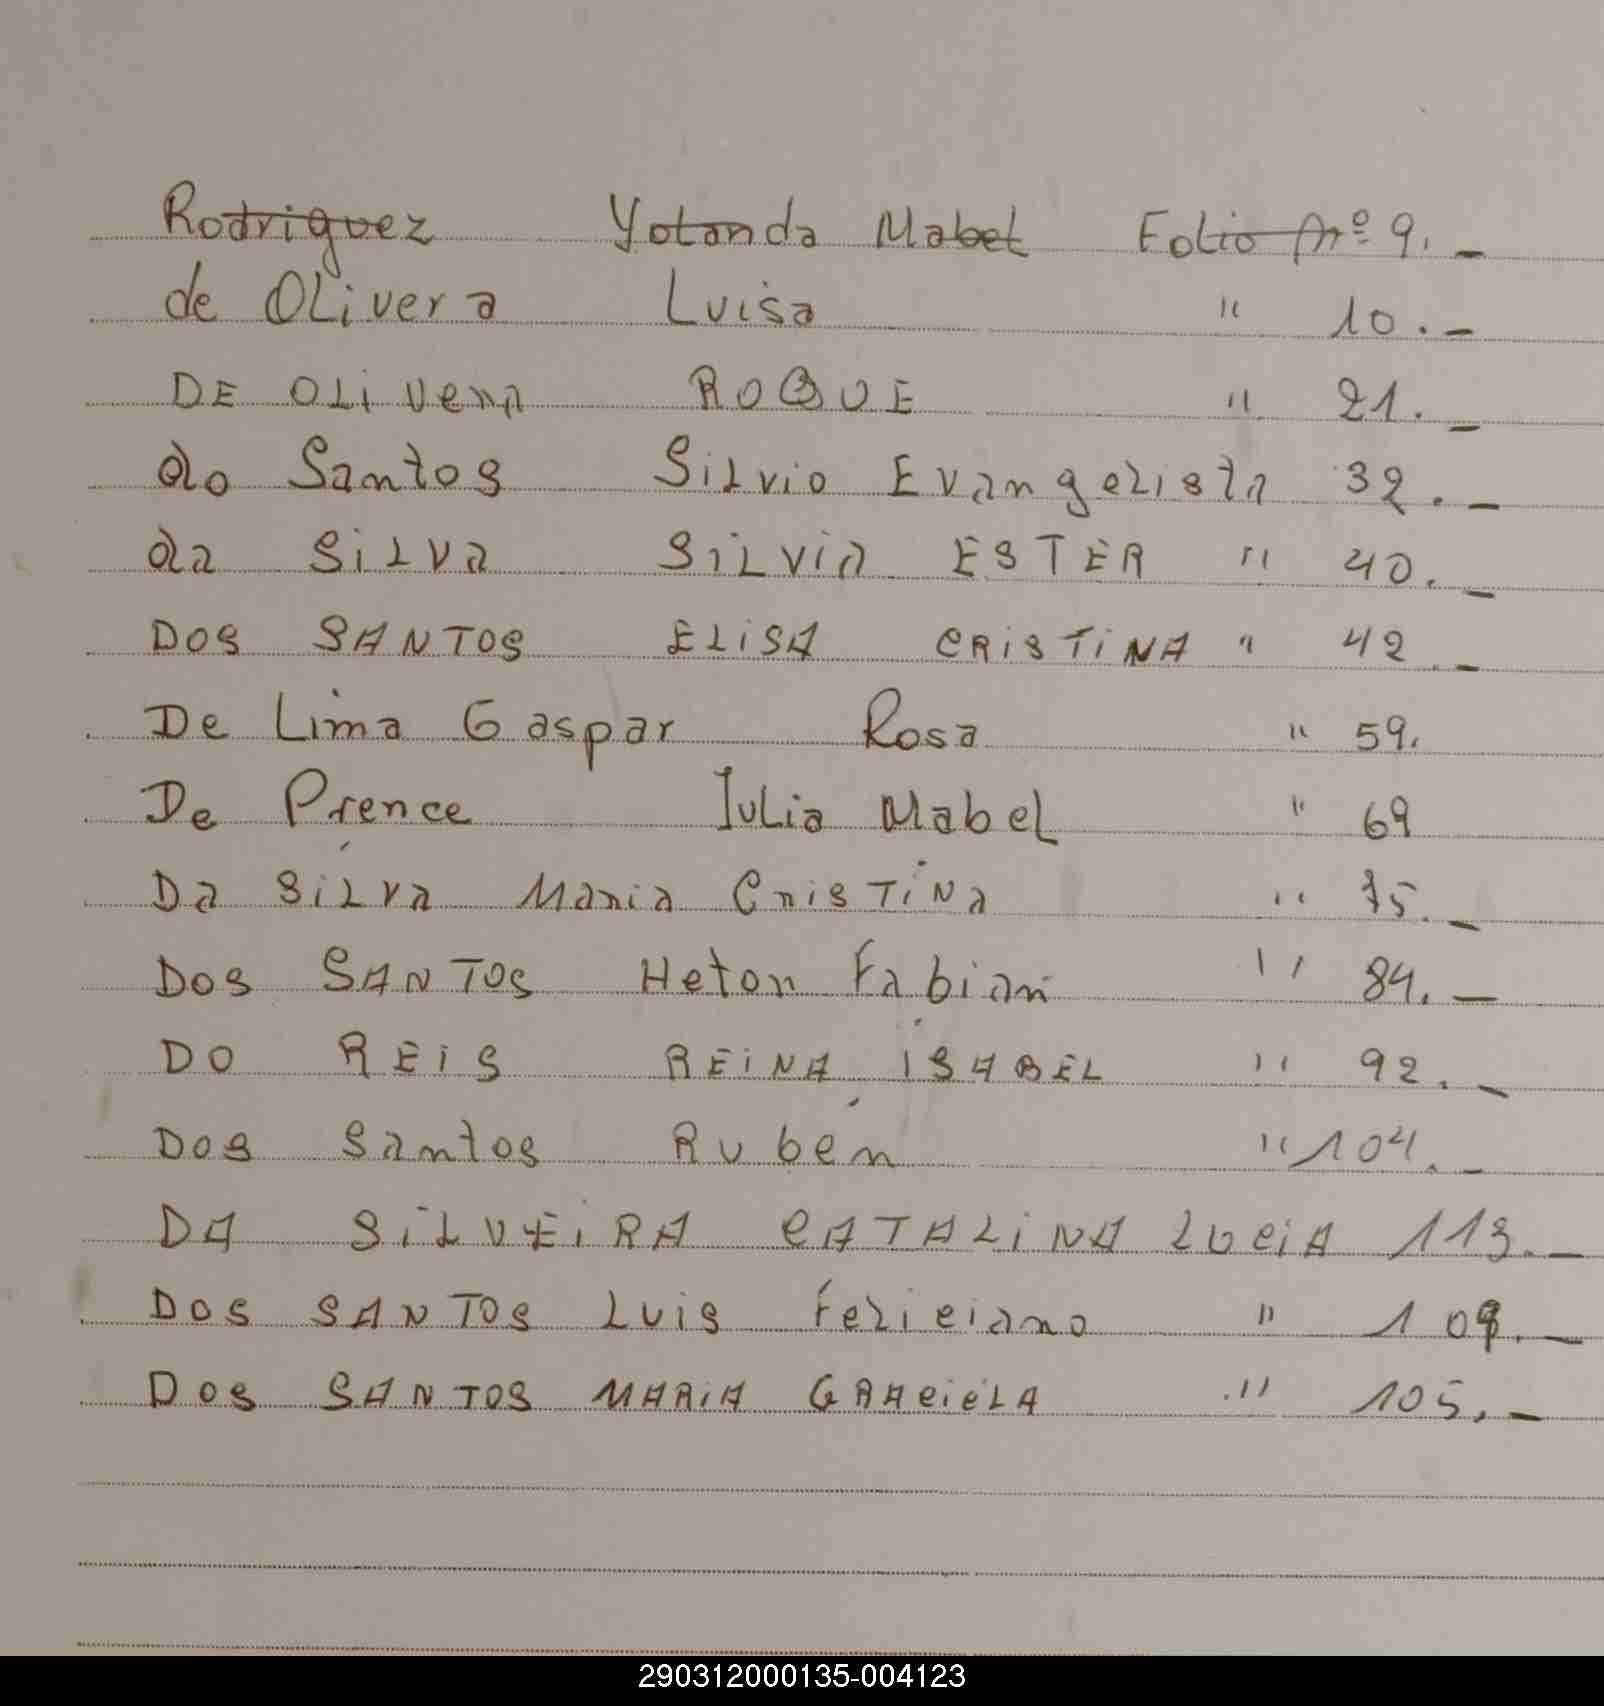 Rodriguez Yolanda Mabel Folio Nº 9.-
de Olivera Luisa " 10.-
DE OLiVera ROQUE " 21.-
do Santos Silvio Evangelista 32.-
da SiLVa SiLVia ESTER " 40.-
DOS SANTOS ELiSA CRiSTiNA " 42.-
De Lima Gaspar Rosa " 59.
De Prence Iulia Mabel " 69
Da SiLva Maria CrisTiNa " 75.-
Dos SANTOS Heton Fabian " 84.-
DO REiS REiNA iSABEL " 92.-
Dos Santos Ruben " 104.-
DA SiLVEiRA CATALiNA LUCiA 113.-
Dos SANTOS Luis Feliciano " 109.-
Dos SANTOS MARiA GRACiELA " 105.-
290312000135-004123